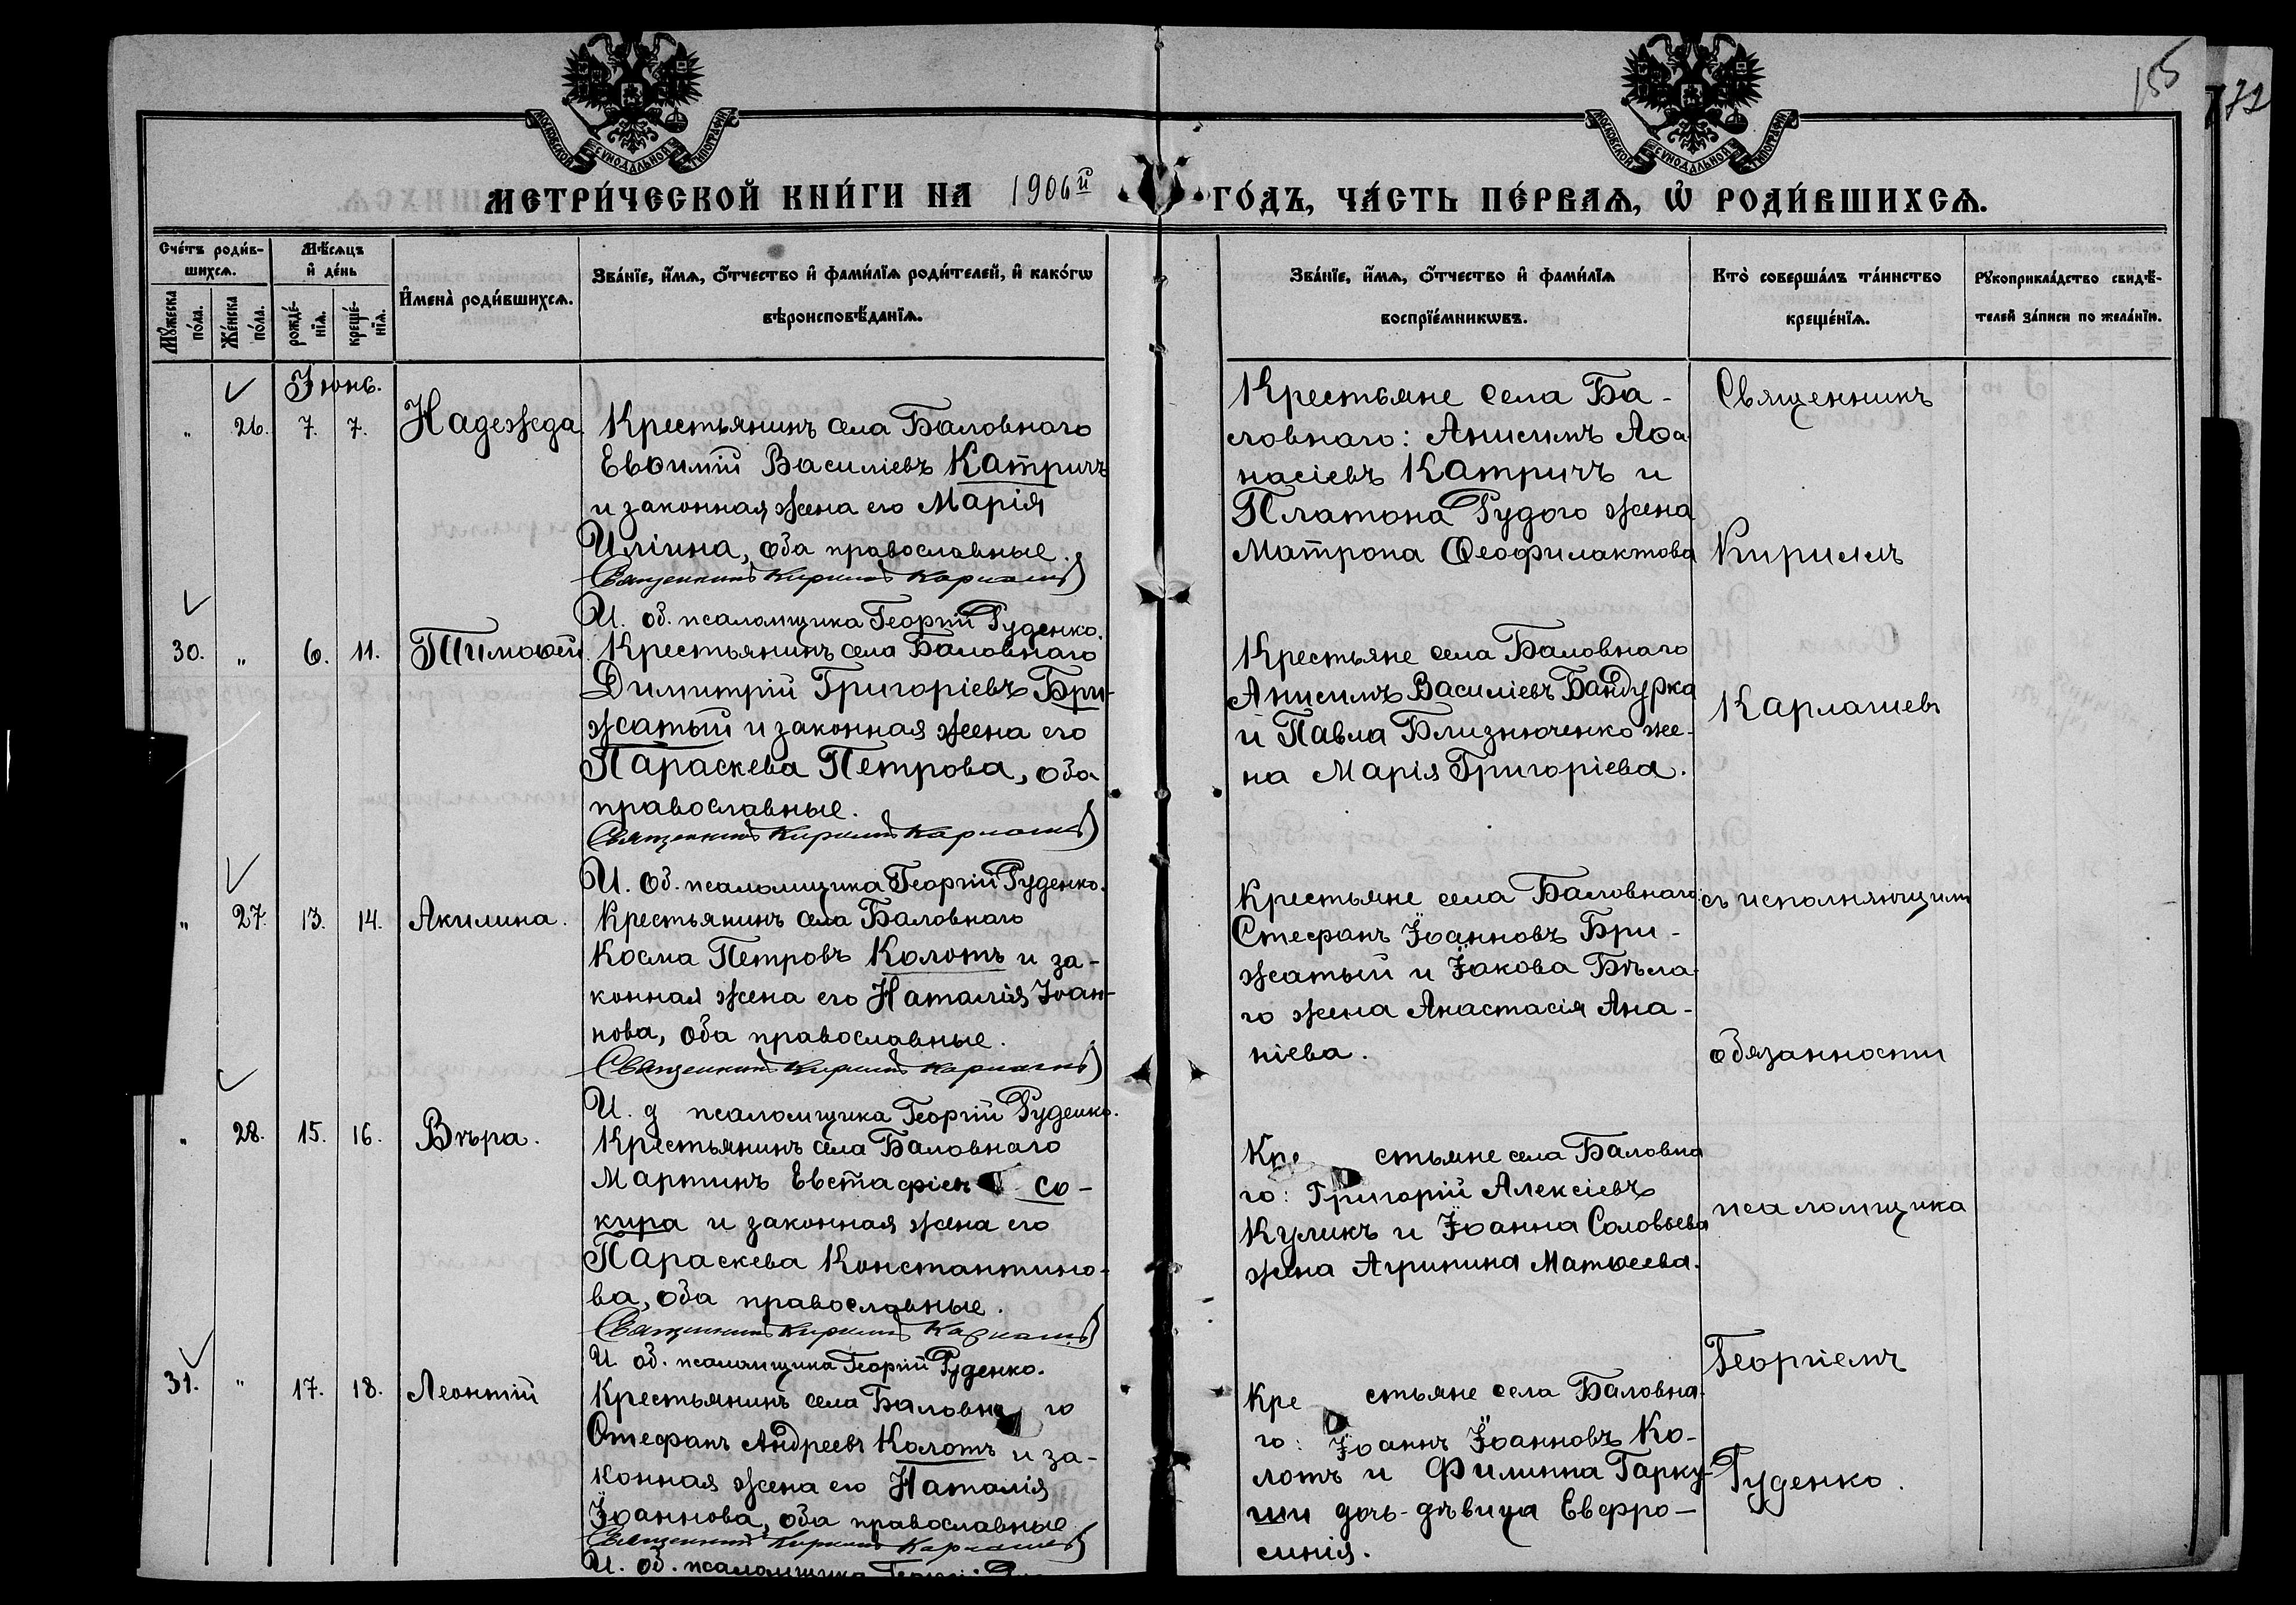 155
172
МОСКОВСКОЙ СѴНОДАЛЬНОЙ ТИПОГРАФІИ
МОСКОВСКОЙ СѴНОДАЛЬНОЙ ТИПОГРАФІИ
МЕТРИ́ЧЕСКОЙ КНИ́ГИ НА 1906й ГО́ДЪ, ЧА́СТЬ ПЕ́РВАѦ, Ѽ РОДИ́ВШИХСѦ.
Сче́тъ роди́в-
шихсѧ.
Мꙋ́жеска
по́ла.
Же́нска
по́ла.
Мѣ́сѧцъ
и де́нь
рожде́-
нїѧ.
креще́-
нїѧ.
И҆мена̀ роди́вшихсѧ.
Зва́нїе, и҆́мѧ, ѻ҆́тчество и҆ фами́лїѧ роди́телей, и҆ како́гѡ
вѣроисповѣ́данїѧ.
Зва́нїе, и҆́мѧ, ѻ҆́тчество и҆ фами́лїѧ
воспрїе́мникѡвъ.
Кто̀ соверша́лъ та́инство
креще́нїѧ.
Рꙋкоприкла́дство свидѣ́-
телей за́писи по жела́нїю.
Іюнь.
" 26. 7. 7. Надежда.
Крестьянинъ села Баловнаго
Евѳимій Василіевъ Катричъ
и законная жена его Марія
Иліина, оба православные.
Священникъ Кириллъ Карлашевъ
И. об. псаломщика Георгій Руденко.
Крестьяне села Ба-
ловнаго: Анисимъ Аѳа
насіевъ Катричъ и
Платона Рудого жена
Матрона Ѳеофилактова
30. " 6. 11. Тимоѳей
Крестьянинъ села Баловнаго
Димитрій Григоріевъ Бри-
жатый и законная жена его
Параскева Петрова, оба
православные.
Священникъ Кириллъ Карлашевъ
И. об. псаломщика Георгій Руденко.
Крестьяне села Баловнаго
Анисимъ Василіевъ Бандурка
и Павла Близнюченко же-
на Марія Григоріева.
" 27. 13. 14. Акилина.
Крестьянинъ села Баловнаго
Косма Петровъ Колотъ и за-
конная жена его Наталія Іоан-
нова, оба православные.
Священникъ Кириллъ Карлашевъ
И. д псаломщика Георгій Руденко.
Крестьяне села Баловнаго:
Стефанъ Іоанновъ Бри-
жатый и Іакова Бѣла-
го жена Анастасія Ана-
ніева.
" 28. 15. 16. Вѣра.
Крестьянинъ села Баловнаго
Мартинъ Евстафіевъ Со-
кира и законная жена его
Параскева Константино-
ва, оба православные.
Священникъ Кириллъ Карлашевъ
И. об. псаломщика Георгій Руденко.
Кре стьяне села Баловна
го: Григорій Алексіевъ
Куликъ и Іоанна Соловьева
жена Агрипина Матѳеева.
31. " 17. 18. Леонтій
Крестьянинъ села Баловна го
Стефанъ Андреевъ Колотъ и за-
конная жена его Наталія
Іоаннова, оба православные
Священникъ Кириллъ Карлашевъ
И. об. псаломщика
Кре стьяне села Баловна-
го: Іоаннъ Іоанновъ Ко-
лотъ и Филиппа Гарку-
ши дочь-дѣвица Евфро-
синія.
Священникъ
Кириллъ
Карлашевъ
съ исполняющимъ
обязанности
псаломщика
Георгіемъ
Руденко.